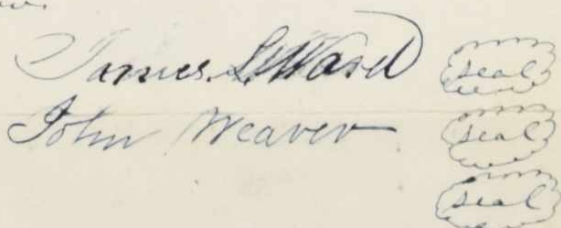 James S. Ward seal
John Weaver seal
seal